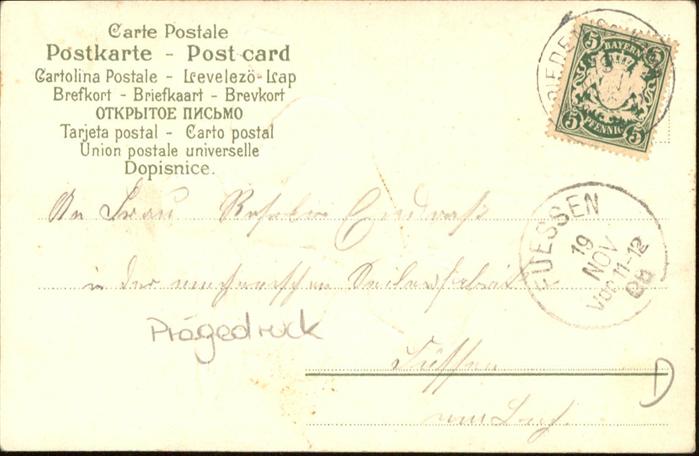 Carte Postale
Postkarte - Post card
Cartolina Postale - Levelezö-Lap
Brefkort - Briefkaart - Brevkort
ОТКРЫТОЕ ПИСЬМО
Tarjeta postal - Carto postal
Union postale universelle
Dopisnice.
5 BAYERN 5
5 PFENNIG 5
FUESSEN
19
NOV
Vor 11-12
An Frau Rosalie
in der mechanischen Seilerfabrik
Prägedruck
Füssen
am Lech.
D